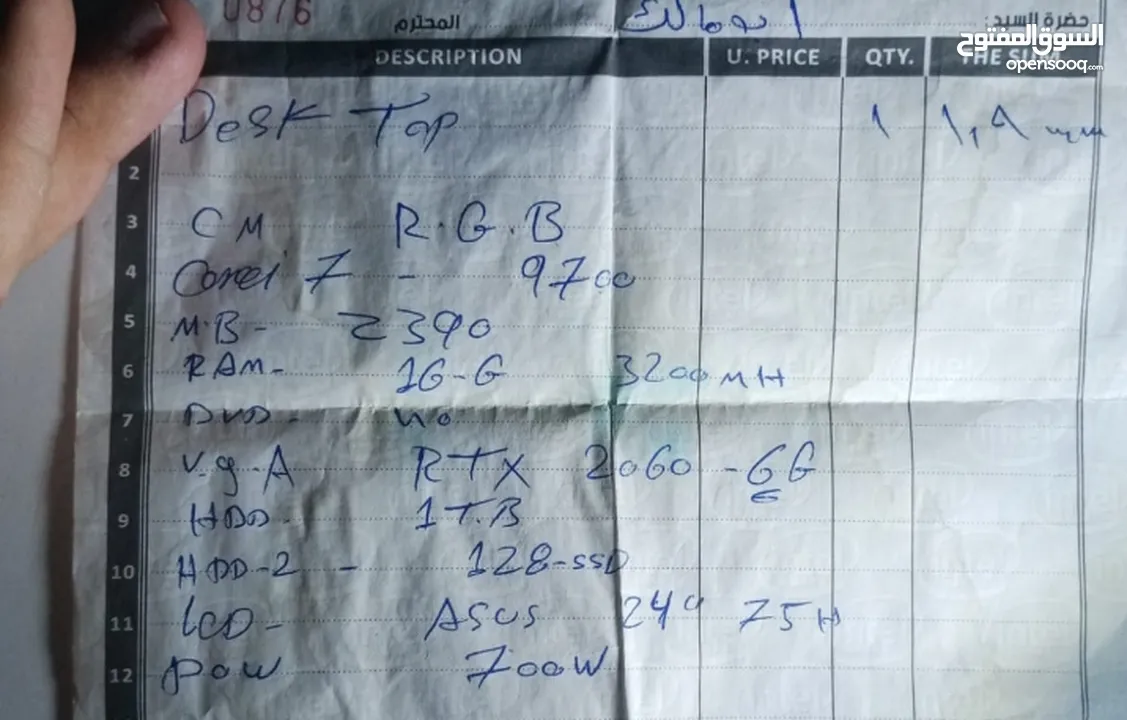 0876 المحترم ابو مالك حضرة السيد:
السوق المفتوح
opensooq.com
DESCRIPTION U. PRICE QTY. THE SUM
Desk Top ١ ١,٩
2
3 CM R.G.B
4 Corei 7 - 9700
5 M.B - Z390
6 RAM - 16-G 3200 MH
7 DVD - no
8 V.g-A RTX 2060 - 6G
9 HDD - 1T.B
10 HDD-2 - 128-SSD
11 LCD - ASUS 24" 75H
12 pow 700W